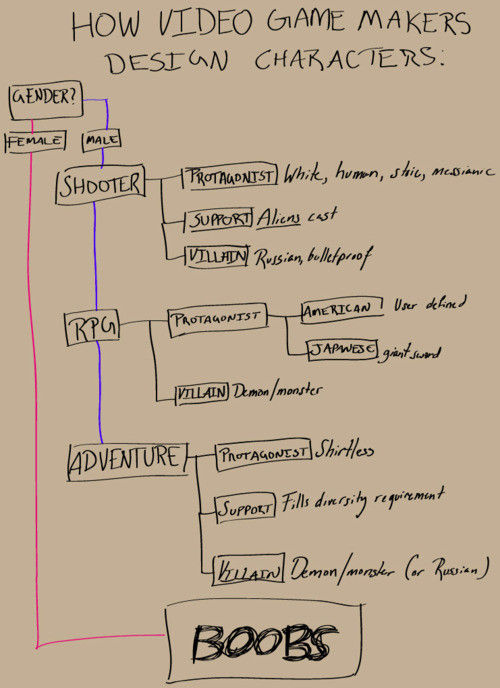 HOW VIDEO GAME MAKERS
DESIGN CHARACTERS:
GENDER?
FEMALE
MALE
SHOOTER
PROTAGONIST White, human, stoic, messianic
SUPPORT Aliens cast
VILLAIN Russian, bulletproof
RPG
PROTAGONIST
AMERICAN User defined
JAPANESE giant sword
VILLAIN Demon/monster
ADVENTURE
PROTAGONIST Shirtless
SUPPORT Fills diversity requirement
VILLAIN Demon/monster (or Russian)
BOOBS